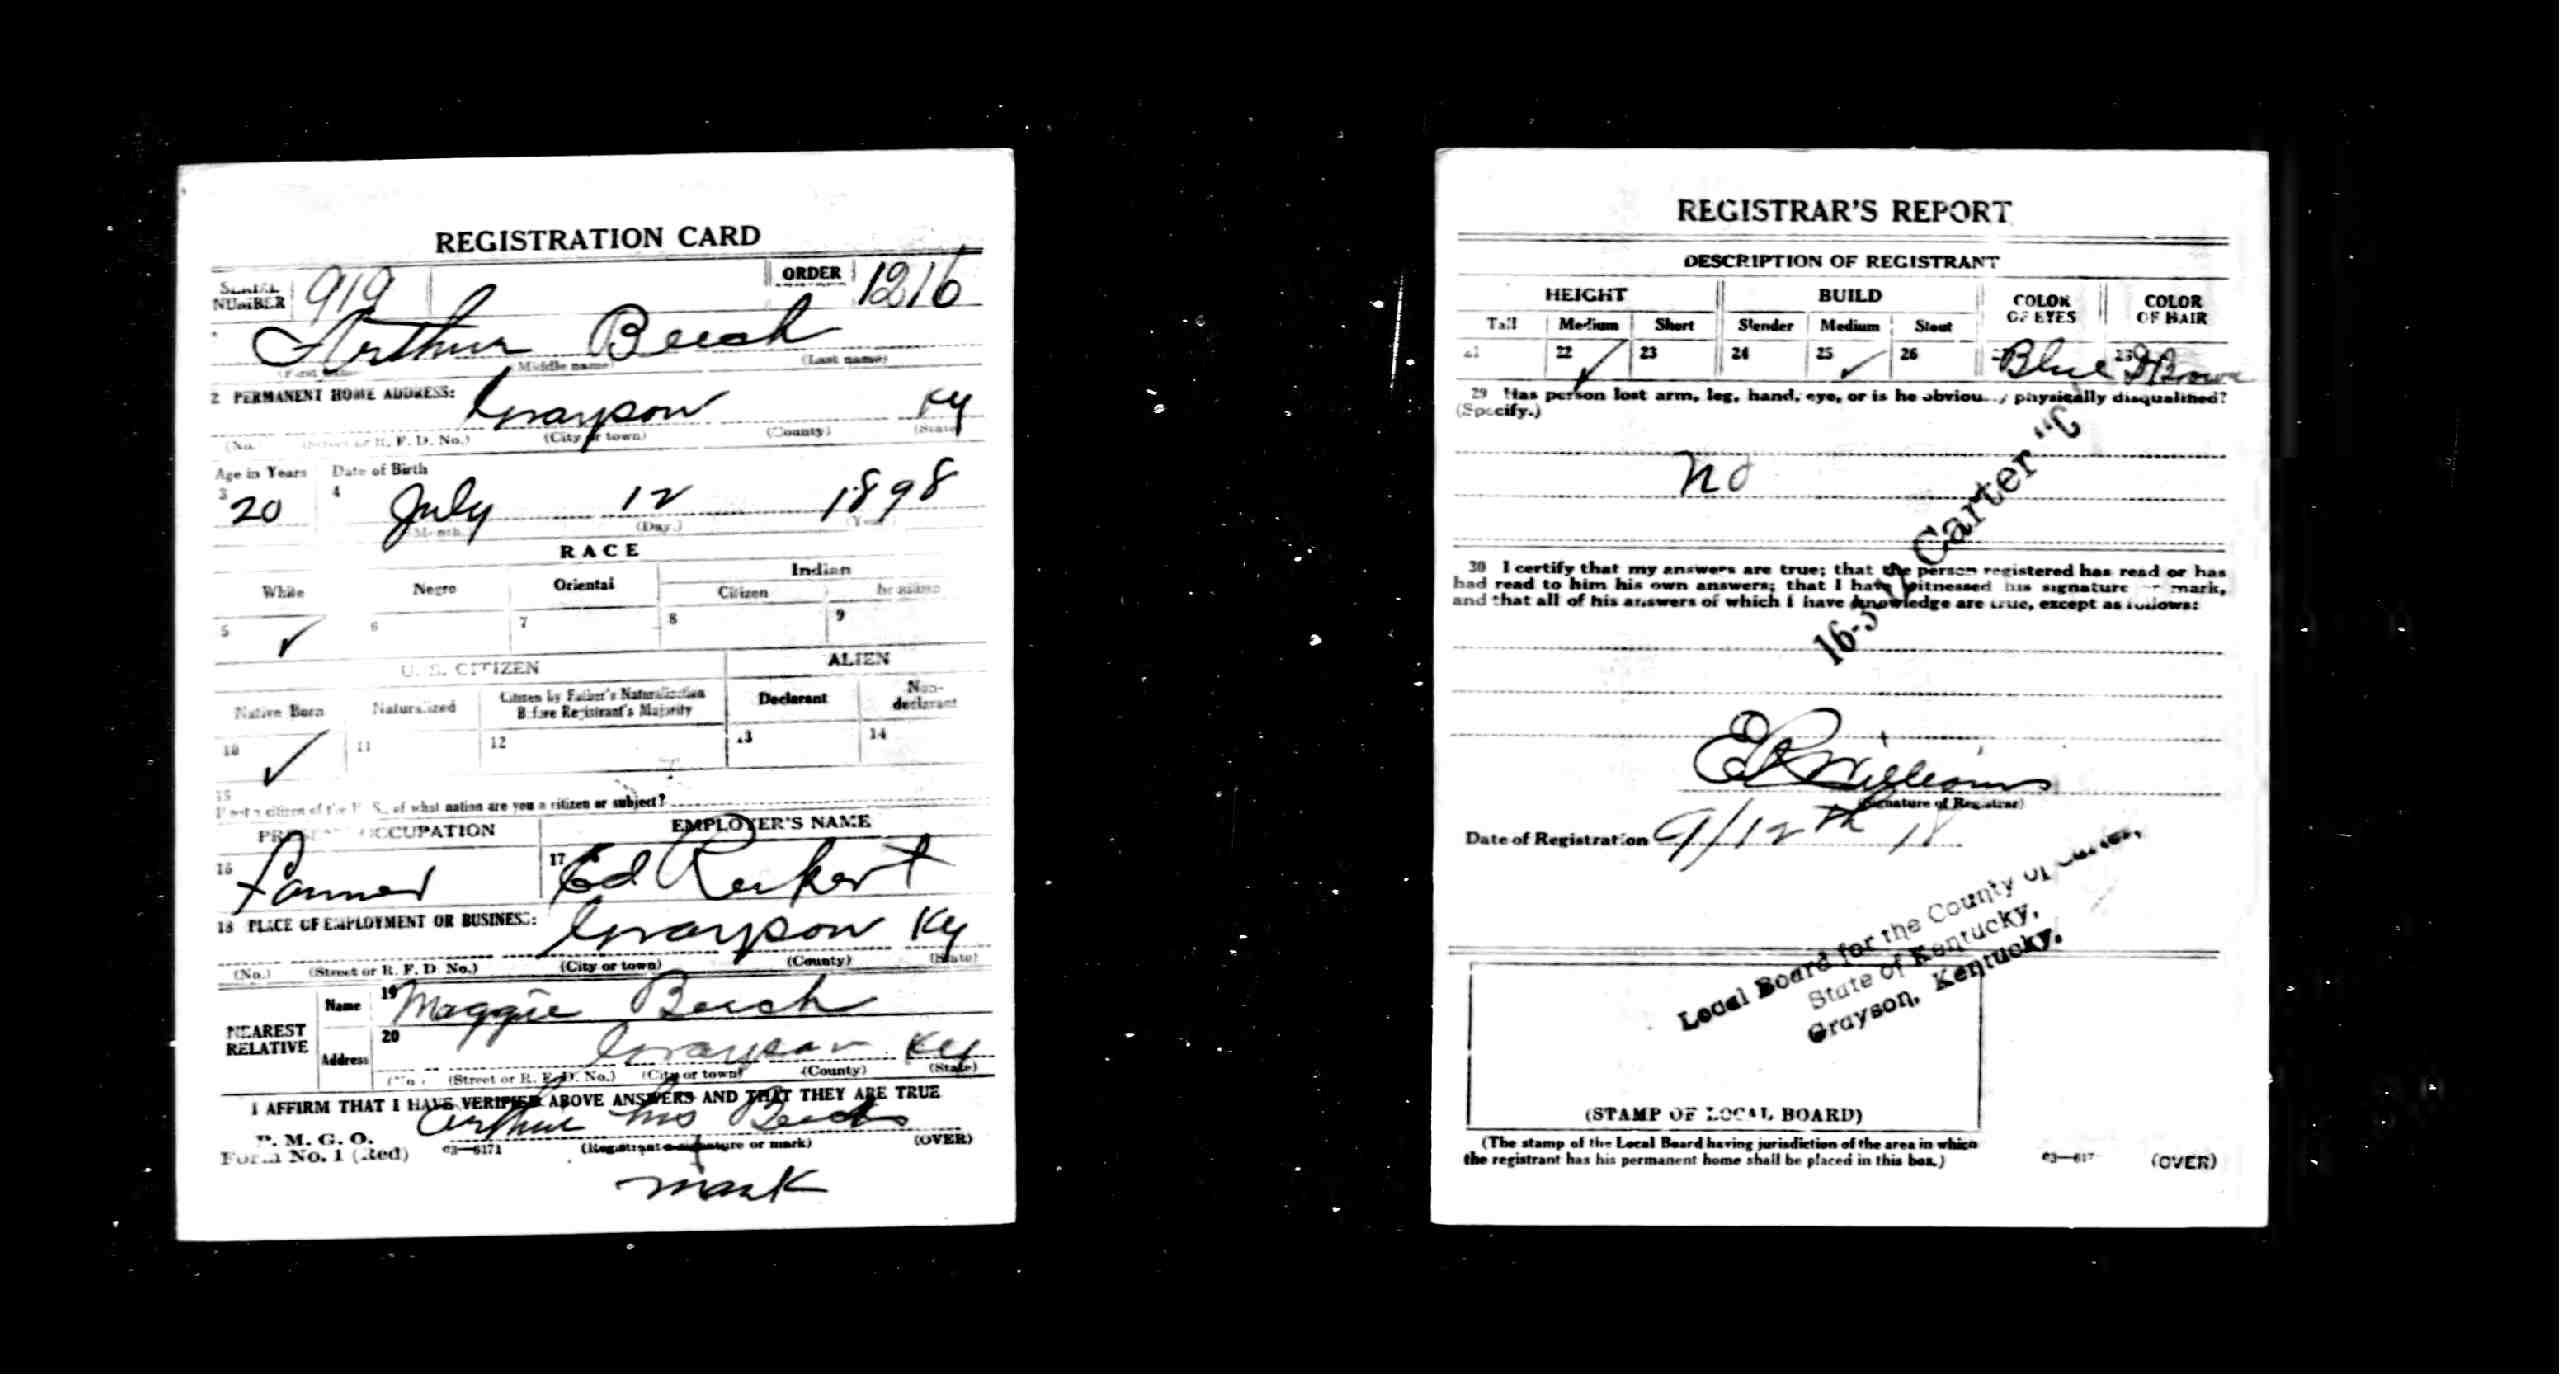 REGISTRATION CARD
SERIAL NUMBER 919 ORDER 1216
Arthur Beech
(First name) (Middle name) (Last name)
2 PERMANENT HOME ADDRESS: Grayson Ky
(No. (Street or R. F. D. No.) (City or town) (County) (State
Age in Years Date of Birth
3 20 4 July 12 1898
(Month (Day.) (Year
RACE
White Negro Oriental Indian
Citizen
5 ✓ 6 7 8 9
U. S. CITIZEN ALIEN
Native Born Naturalized Citizen by Father's Naturalization Before Registrant's Majority Declarant Non-declarant
10 ✓ 11 12 13 14
15
If not a citizen of the U. S., of what nation are you a citizen or subject?
PRESENT OCCUPATION EMPLOYER'S NAME
16 Farmer 17 Ed
18 PLACE OF EMPLOYMENT OR BUSINESS: Grayson Ky
(No.) (Street or R. F. D. No.) (City or town) (County) (State)
NEAREST RELATIVE Name 19 Maggie Beech
Address 20 Grayson Ky
(No.) (Street or R. F. D. No.) (City or town) (County) (State)
I AFFIRM THAT I HAVE VERIFIED ABOVE ANSWERS AND THAT THEY ARE TRUE
Arthur his Beech
P. M. G. O.
Form No. 1 (Red) 03—6171 (Registrant's signature or mark) (OVER)
mark
REGISTRAR'S REPORT
DESCRIPTION OF REGISTRANT
HEIGHT BUILD COLOR OF EYES COLOR OF HAIR
Tall Medium Short Slender Medium Stout
21 22 ✓ 23 24 25 ✓ 26 Blue D Brown
29 Has person lost arm, leg, hand, eye, or is he obviously physically disqualified?
(Specify.)
no
16-3-12 Carter "C
30 I certify that my answers are true; that the person registered has read or has
had read to him his own answers; that I have witnessed his signature or mark,
and that all of his answers of which I have knowledge are true, except as follows:
E R Williams
(Signature of Registrar)
Date of Registration 9/12th 18
Local Board for the County of Carter,
State of Kentucky,
Grayson, Kentucky.
(STAMP OF LOCAL BOARD)
(The stamp of the Local Board having jurisdiction of the area in which
the registrant has his permanent home shall be placed in this box.)
03—617 (OVER)